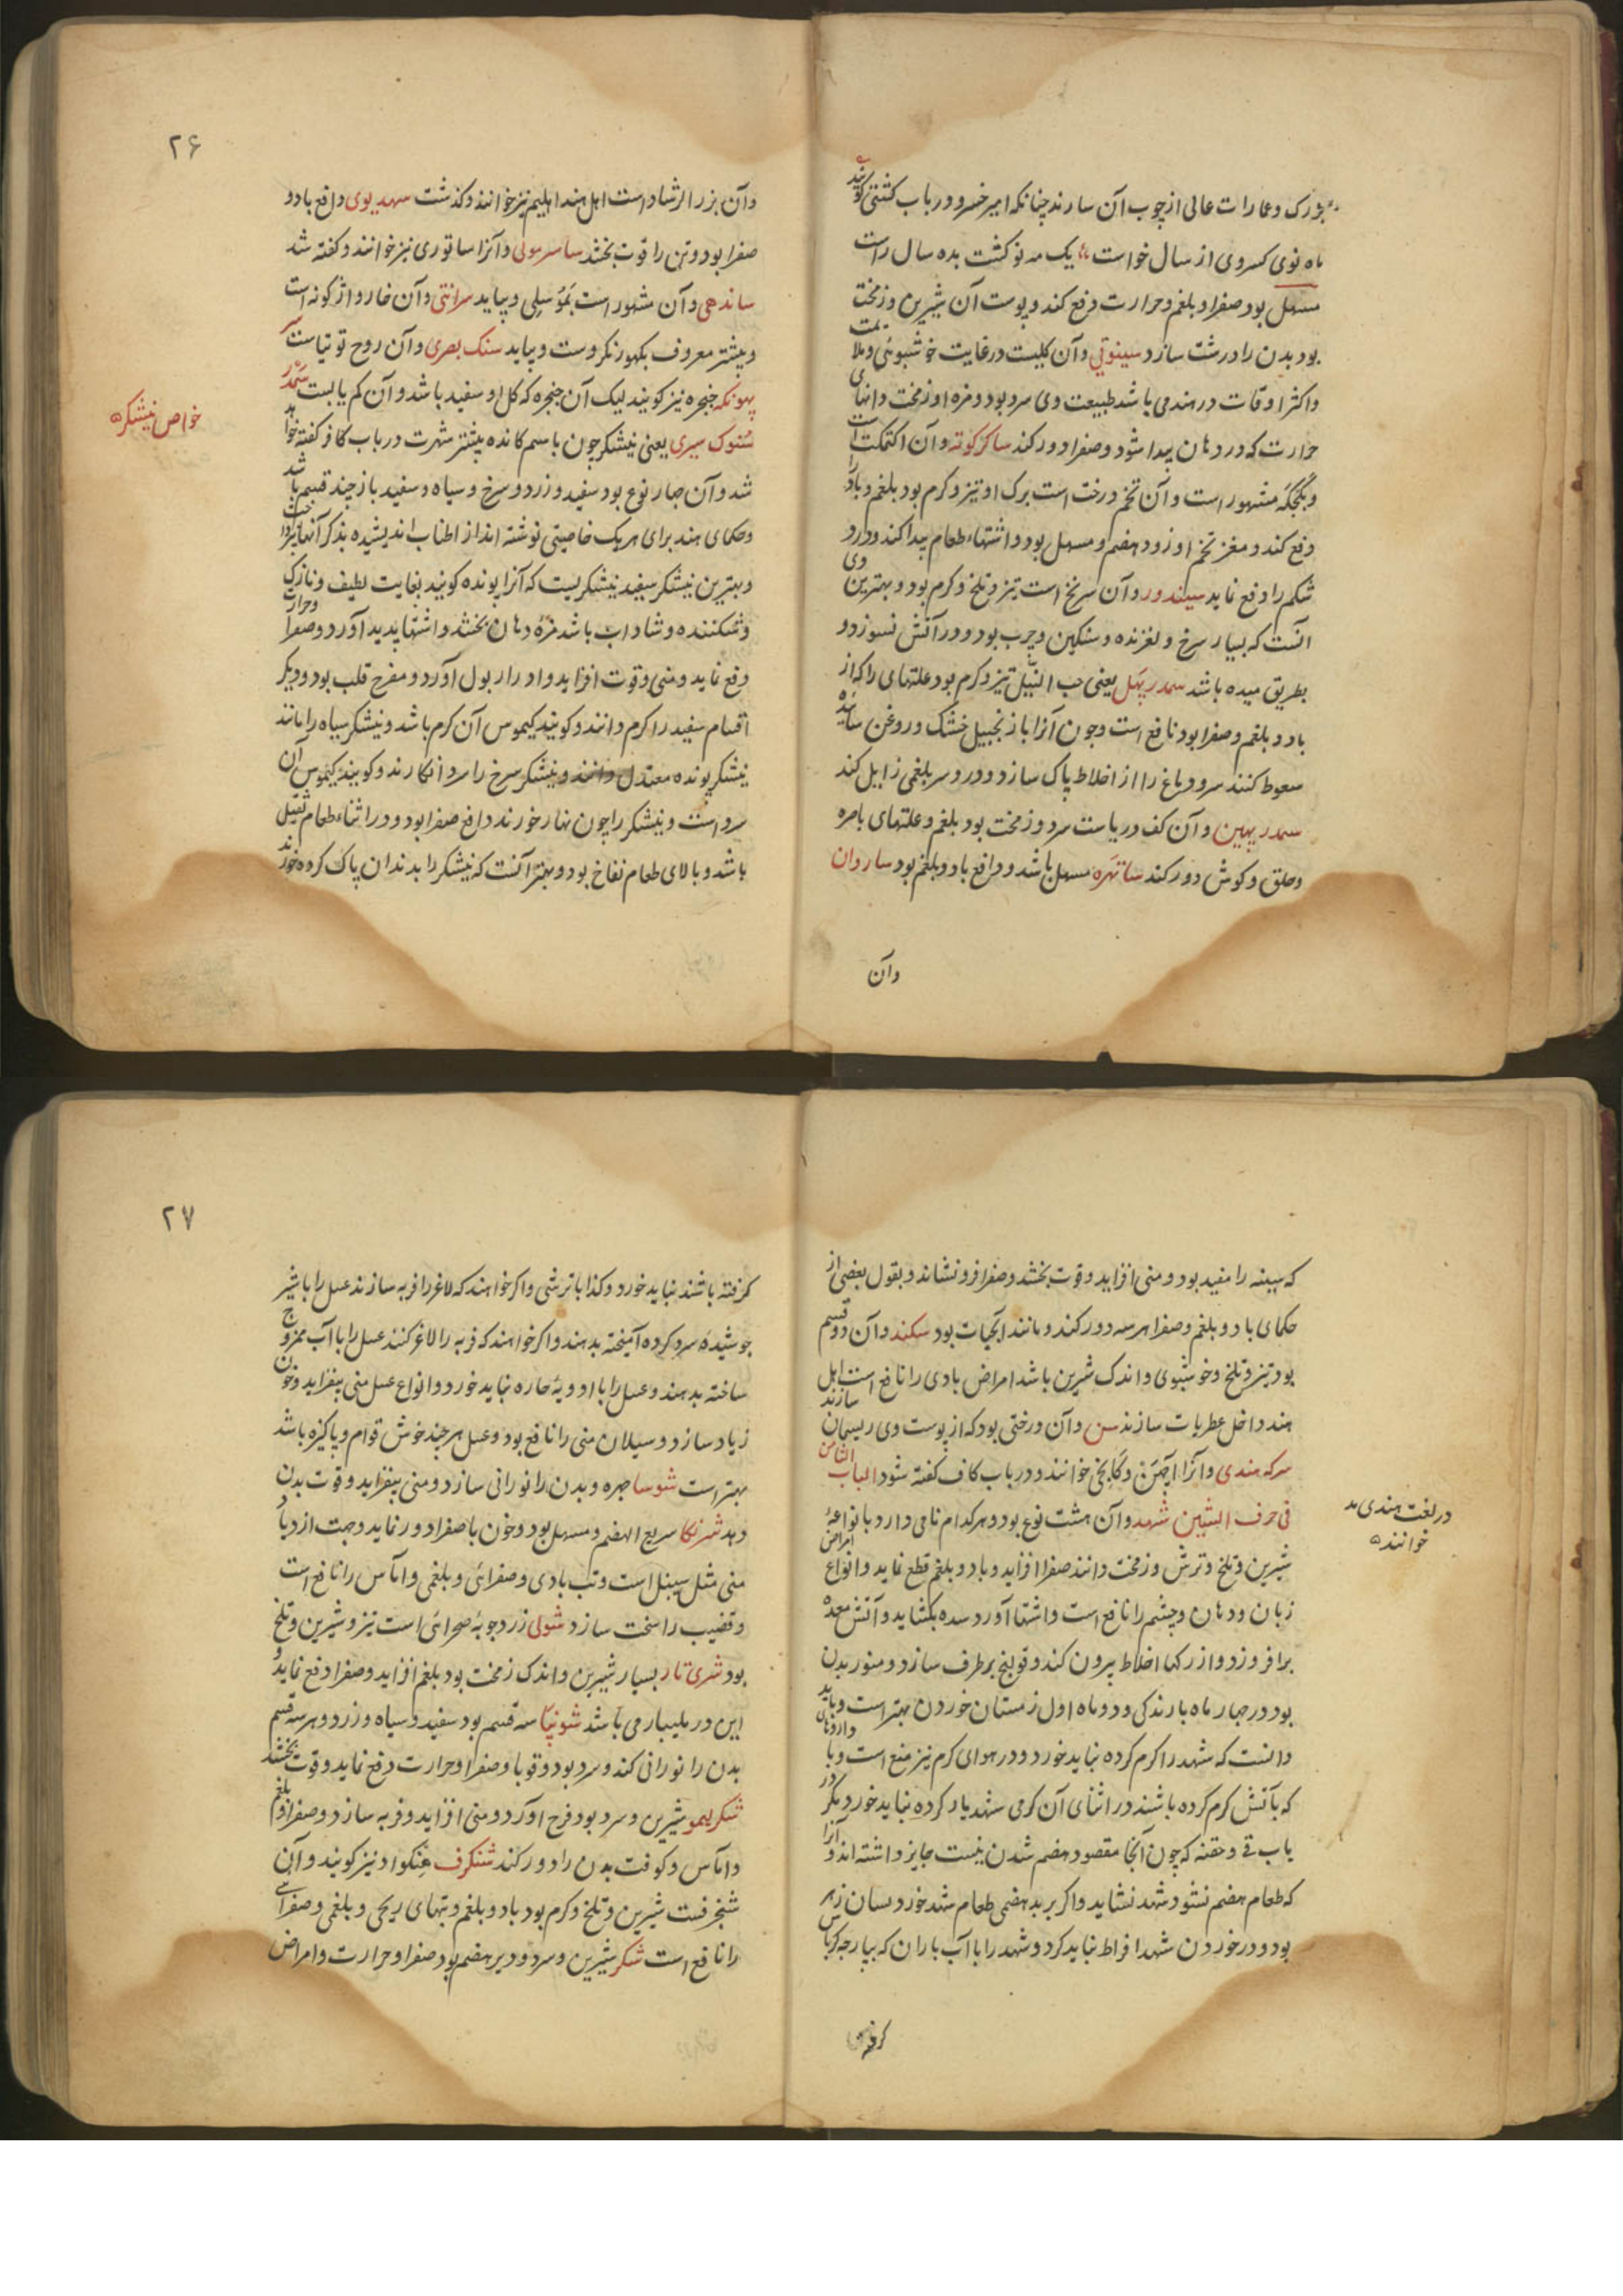 بزرک و عمارات عالی از چوب آن سازند چنانکه امیر خسرو در باب کشتی کوید
ماه نوی کسروی از سال خواست یک مه نو کشت بده سال راست
مسهل بود صفرا و بلغم و حرارت دفع کند و پوست آن شیرین و زمخت
بود بدن را درشت سازد سینوتی و آن کلیست در غایت خوشبوئی و ملایمت
و اکثر اوقات در هند می باشد طبیعت وی سرد بود و مزه او زمخت و انهای
حرارت که در دهان پیدا شود و صفرا دور کند ساکر کوته و آن اکتمکت است
و بکجکه مشهور است و آن تخم درخت است برک او تیز و کرم بود بلغم و باد را
دفع کند و مغز تخم او زود هضم و مسهل بود و اشتهاء طعام پیدا کند و درد
شکم را دفع نماید سیندور و آن سرنج است تیز و تلخ و کرم بود و بهترین وی
انست که بسیار سرخ و لغزنده و سنکین و چرب بود و در آتش نسوزد و
بطریق میده باشد سمدر پهل یعنی حب النیل تیز و کرم بود علتهای را که از
باد و بلغم و صفرا بود نافع است و چون آنرا با زنجبیل خشک و روغن سائیده
سعوط کنند سر و دماغ را از اخلاط پاک سازد و درد سر بلغمی زایل کند
سمدر پهین و آن کف دریاست سرد و زمخت بود بلغم و علتهای باصره
و حلق و کوش دور کند ساتهره مسهل باشد و دافع باد و بلغم بود ساروان
وآن
۲۶
وآن بزر الرشاد است اهل هند اهلیم نیز خوانند و کذشت سهدیوی دافع باد و
صفرا بود و تن را قوت بخشد ساسرمولی و آنرا ساتوری نیز خوانند و کفته شد
ساندهی و آن مشهور است بموسلی و بیاید سرانتی و آن خار واژکونه است
و بیشتر معروف بکهورنکروست و بیاید سنک بصری و آن روح توتیاست
پهونکه جنجره نیز کویند لیک آن جنجره که کل او سفید باشد و آن کم یابست
سنوک سیری یعنی نیشکر چون باسم کانده بیشتر شهرت در باب کاف کفته خواهد
شد و آن چهار نوع بود سفید و زرد و سرخ و سیاه و سفید باز چند قسم باشد
و حکمای هند برای هریک خاصیتی نوشته اند از اطناب اندیشیده بذکر آنها نپرداخت
و بهترین نیشکر سفید نیشکریست که آنرا پونده کویند بغایت لطیف و نازک
و شکننده و شاداب باشد مزهٔ دهان بخشد و اشتها پدید آورد و صفرا و حرارت
دفع نماید و منی و قوت افزاید و ادرار بول آورد و مفرح قلب بود و دیکر
اقسام سفید را کرم دانند و کویند کیموس آن کرم باشد و نیشکر سیاه را مانند
نیشکر پونده معتدل دانند و نیشکر سرخ را سرد انکارند و کویند کیموس آن
سرد است و نیشکر را چون نهار خورند دافع صفرا بود و در اثناء طعام ثقیل
باشد و بالای طعام نفاخ بود و بهتر آنست که نیشکر را بدندان پاک کرده خورند
خواص نیشکر
که سینه را مفید بود و منی افزاید و قوت بخشد و صفرا فرو نشاند و بقول بعضی از
حکمای باد و بلغم و صفرا هر سه دور کند و مانند آبحیات بود سکند و آن دو قسم
بود تیز و تلخ و خوشبوی و اندک شیرین باشد امراض بادی را نافع است اهل
هند داخل عطریات سازند سن و آن درختی بود که از پوست وی ریسمان سازند
سرکه هندی و آنرا آچمن و کابخی خوانند و در باب کاف کفته شود الباب الثامن
فی حرف الشین شهد و آن هشت نوع بود و هر کدام نامی دارد بانواعهٔ
شیرین و تلخ و ترش و زمخت دانند صفرا افزاید و باد و بلغم قطع نماید و انواع امراض
زبان و دهان و چشم را نافع است و اشتها آورد سده بکشاید و آتش معده
برافروزد و از رکها اخلاط بیرون کند و قولنج برطرف سازد و منور بدن
بود و در چهار ماه بارندکی و دو ماه اول زمستان خوردن بهتر است و باید
دانست که شهد را کرم کرده نباید خورد و در هوای کرم نیز منع است و با داروهای
که بآتش کرم کرده باشند در اثنای آن کرمی شهد یاد کرده نباید خورد مکر در
باب قی و حقنه که چون آنجا مقصود هضم شدن نیست جایز داشته اند و آنرا
که طعام هضم نشود شهد نشاید و اکر بر بد هضمی طعام شهد خورد بسان زهر
بود و در خوردن شهد افراط نباید کرد و شهد را با آب باران که بپارچه کرباس
در لغت هندی مد
خوانند
کرفته
۲۷
کرفته باشند نباید خورد و کذا با ترشی و اکر خواهند که لاغر را فربه سازند عسل را با شیر
جوشیده سرد کرده آمیخته بدهند و اکر خواهند که فربه را لاغر کنند عسل را با آب ممزوج
ساخته بدهند و عسل را با ادویهٔ حاره نباید خورد و انواع عسل منی بیفزاید و خون
زیاد سازد و سیلان منی را نافع بود و عسل هر چند خوش قوام و پاکیزه باشد
بهتر است شوسا چهره و بدن را نورانی سازد و منی بیفزاید و قوت بدن
دهد شرنکا سریع الهضم و مسهل بود و خون با صفرا دور نماید و جهت ازدیاد
منی مثل سینبل است و تب بادی و صفرائی و بلغمی و اماس را نافع است
و قضیب را سخت سازد شولی زردچوبهٔ صحرائی است تیز و شیرین و تلخ
بود شری تار بسیار شیرین و اندک زمخت بود بلغم افزاید و صفرا دفع نماید و
این در ملیبار می باشد شونپکا سه قسم بود سفید و سیاه و زرد و هر سه قسم
بدن را نورانی کند و سرد بود و قوبا و صفرا و حرارت دفع نماید و قوت بخشد
شکر لیمو شیرین و سرد بود فرح آورد و منی افزاید و فربه سازد و صفرا و بلغم
و اماس و کوفت بدن را دور کند شنکرف هنکواد نیز کویند و آن
شنجرفست شیرین و تلخ و کرم بود باد و بلغم و تبهای ریحی و بلغمی و صفرائی
را نافع است شکر شیرین و سرد و دیر هضم بود صفرا و حرارت و امراض